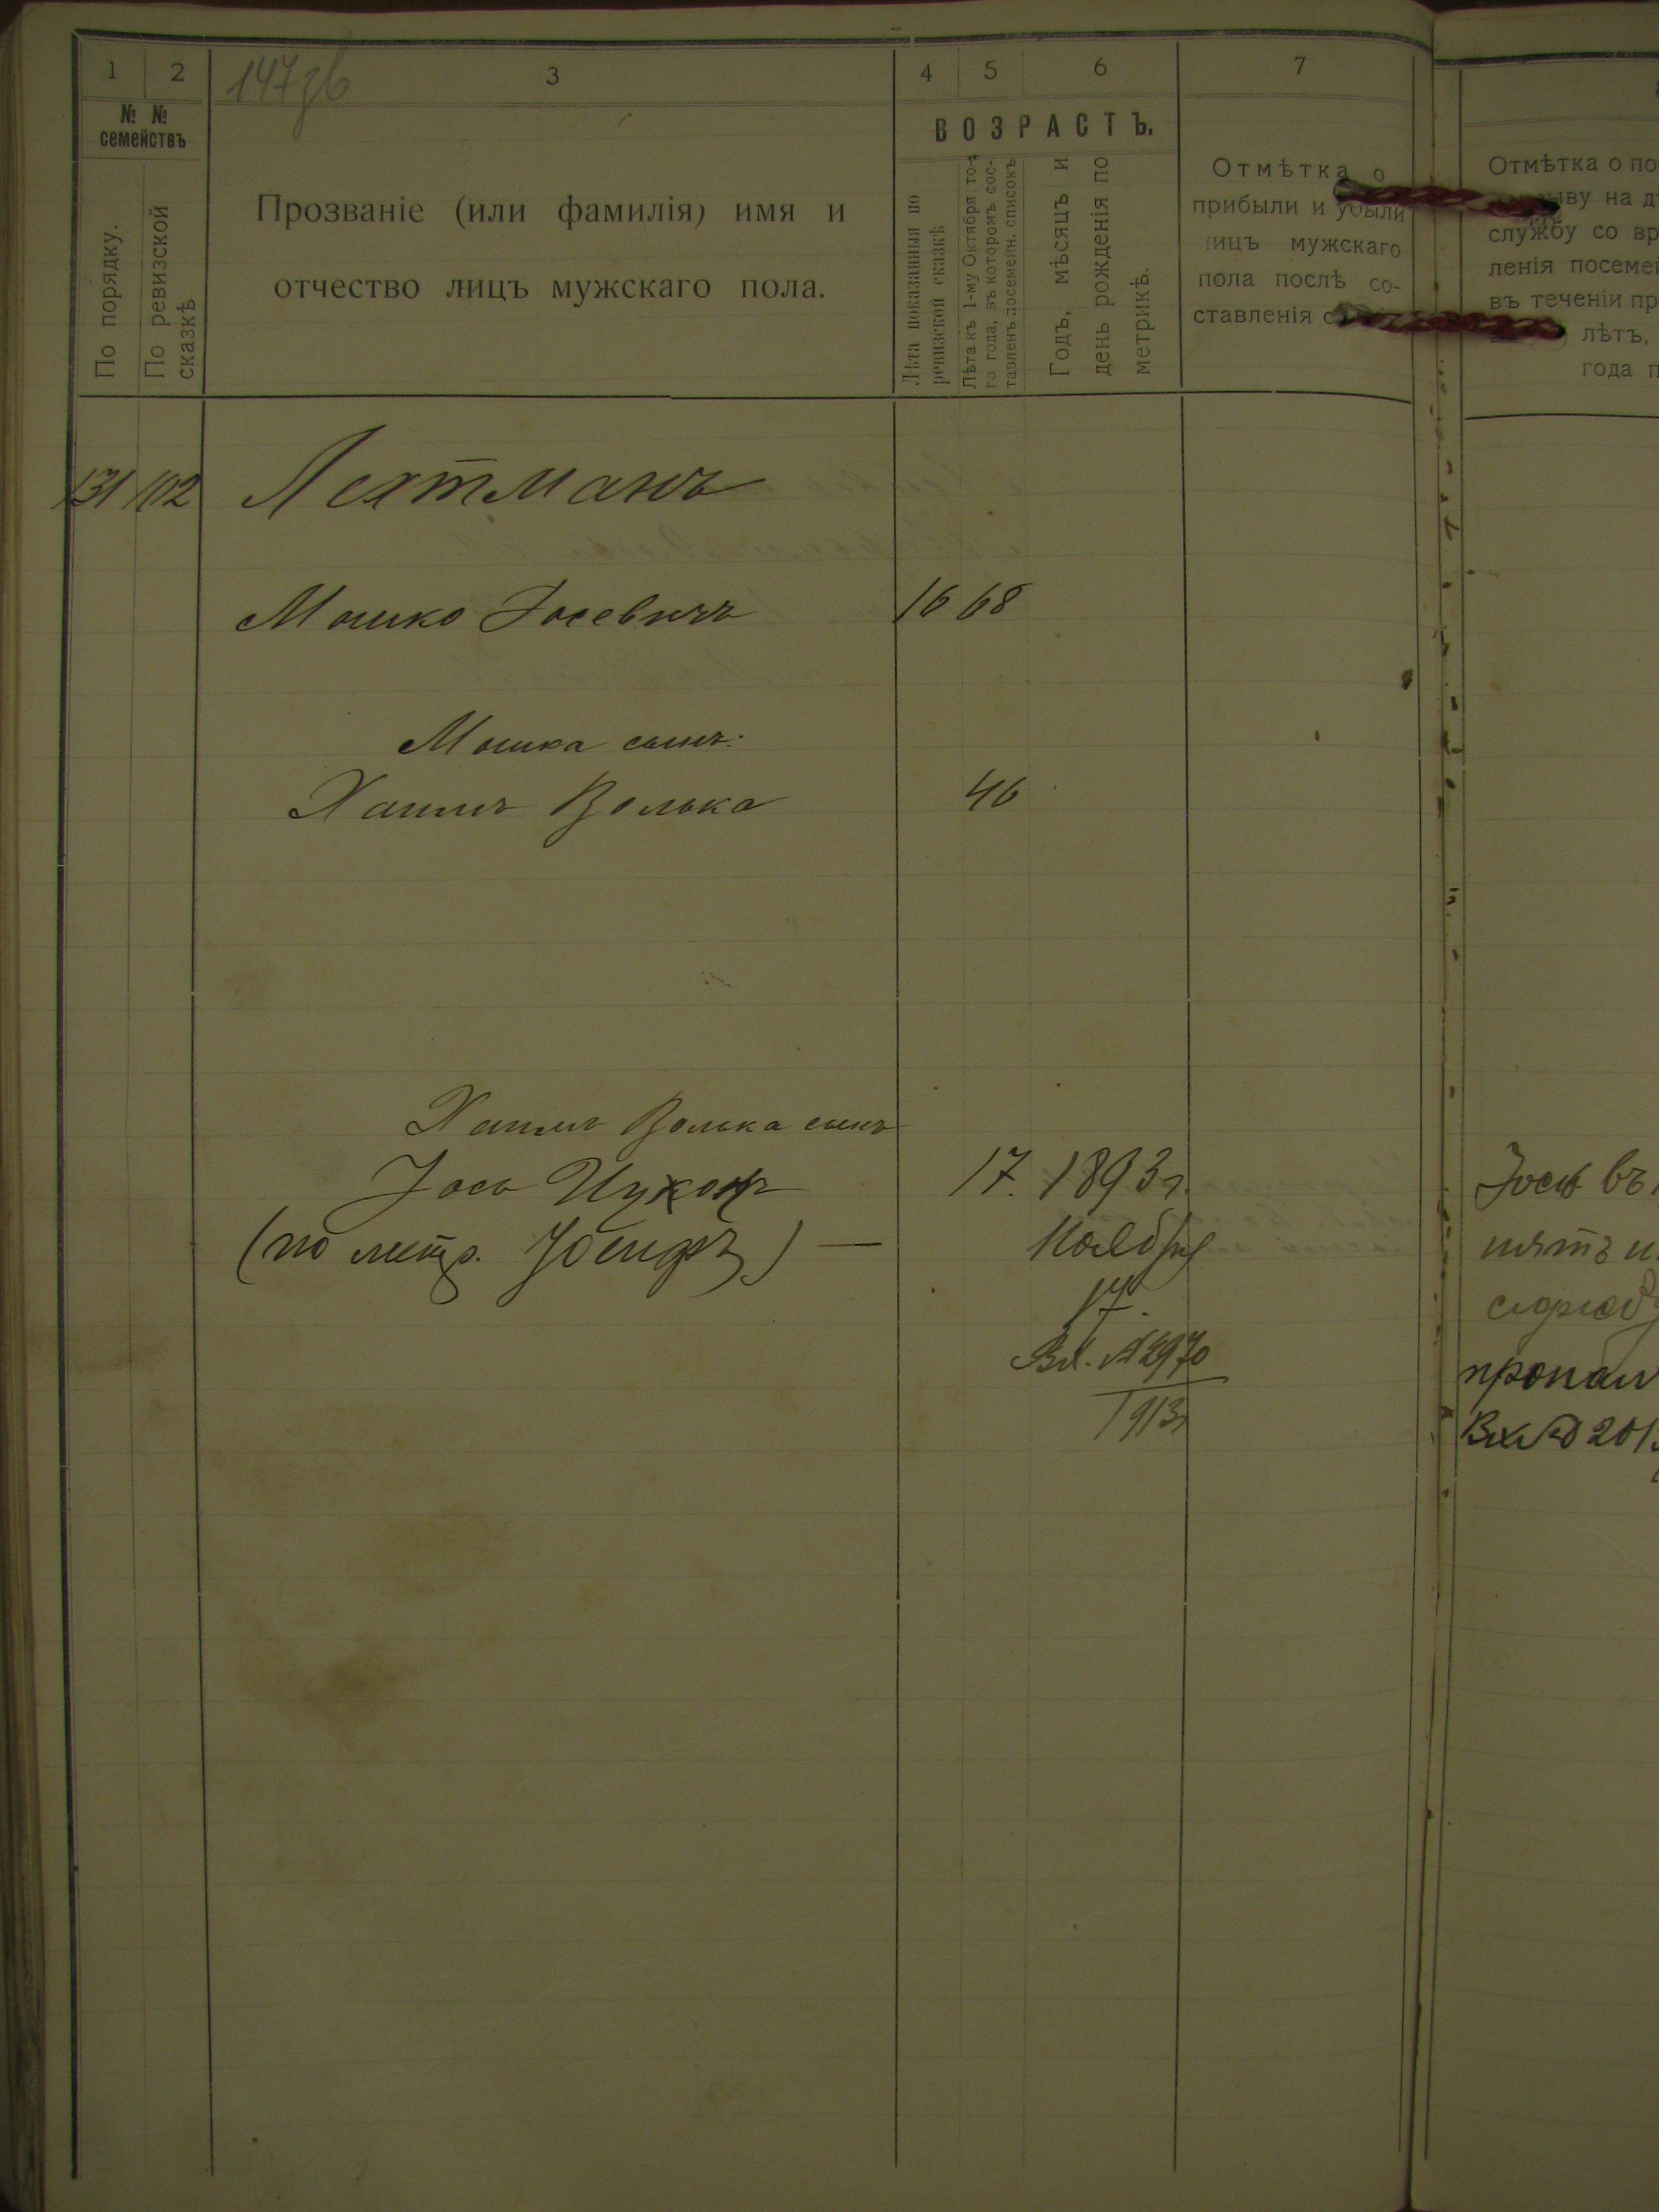 147зв
1 2 3 4 5 6 7
№ № семействъ
По порядку.
По ревизской сказкѣ
Прозваніе (или фамилія) имя и
отчество лицъ мужскаго пола.
ВОЗРАСТЪ.
Лѣта показанныя по
ревизской сказкѣ
Лѣта къ 1-му Октября то-
го года, въ которомъ сос-
тавленъ посемейн. списокъ
Годъ, мѣсяцъ и
день рожденія по
метрикѣ.
Отмѣтка о
прибыли и убыли
лицъ мужскаго
пола послѣ со-
ставленія
Отмѣтка о по
ыву на д
службу со вр
ленія посемей
въ теченіи пр
лѣтъ,
года п
131 102 Лехтманъ
Мошко Іосевичъ 16 68
Мошка сынъ:
Хаимъ Волька 46
Хаимъ Волька сынъ
Іось Ицхокъ 17. 1893 г.
(по метр. Іосифъ) — Ноября
17.
Вх. № 2970
1913 г
Іось въ
нятъ
пропал
Вх № 201